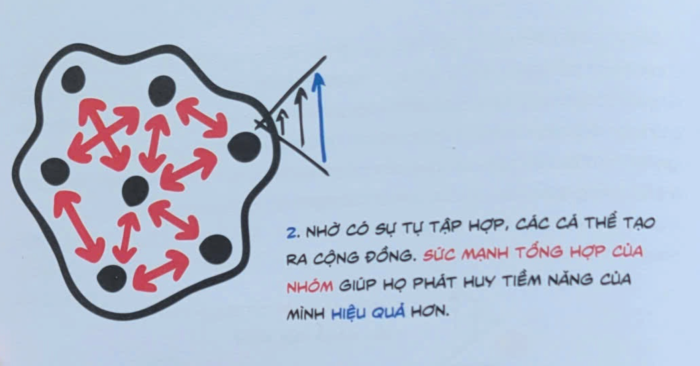 2. NHỜ CÓ SỰ TỰ TẬP HỢP, CÁC CÁ THỂ TẠO
RA CỘNG ĐỒNG. SỨC MẠNH TỔNG HỢP CỦA
NHÓM GIÚP HỌ PHÁT HUY TIỀM NĂNG CỦA
MÌNH HIỆU QUẢ HƠN.